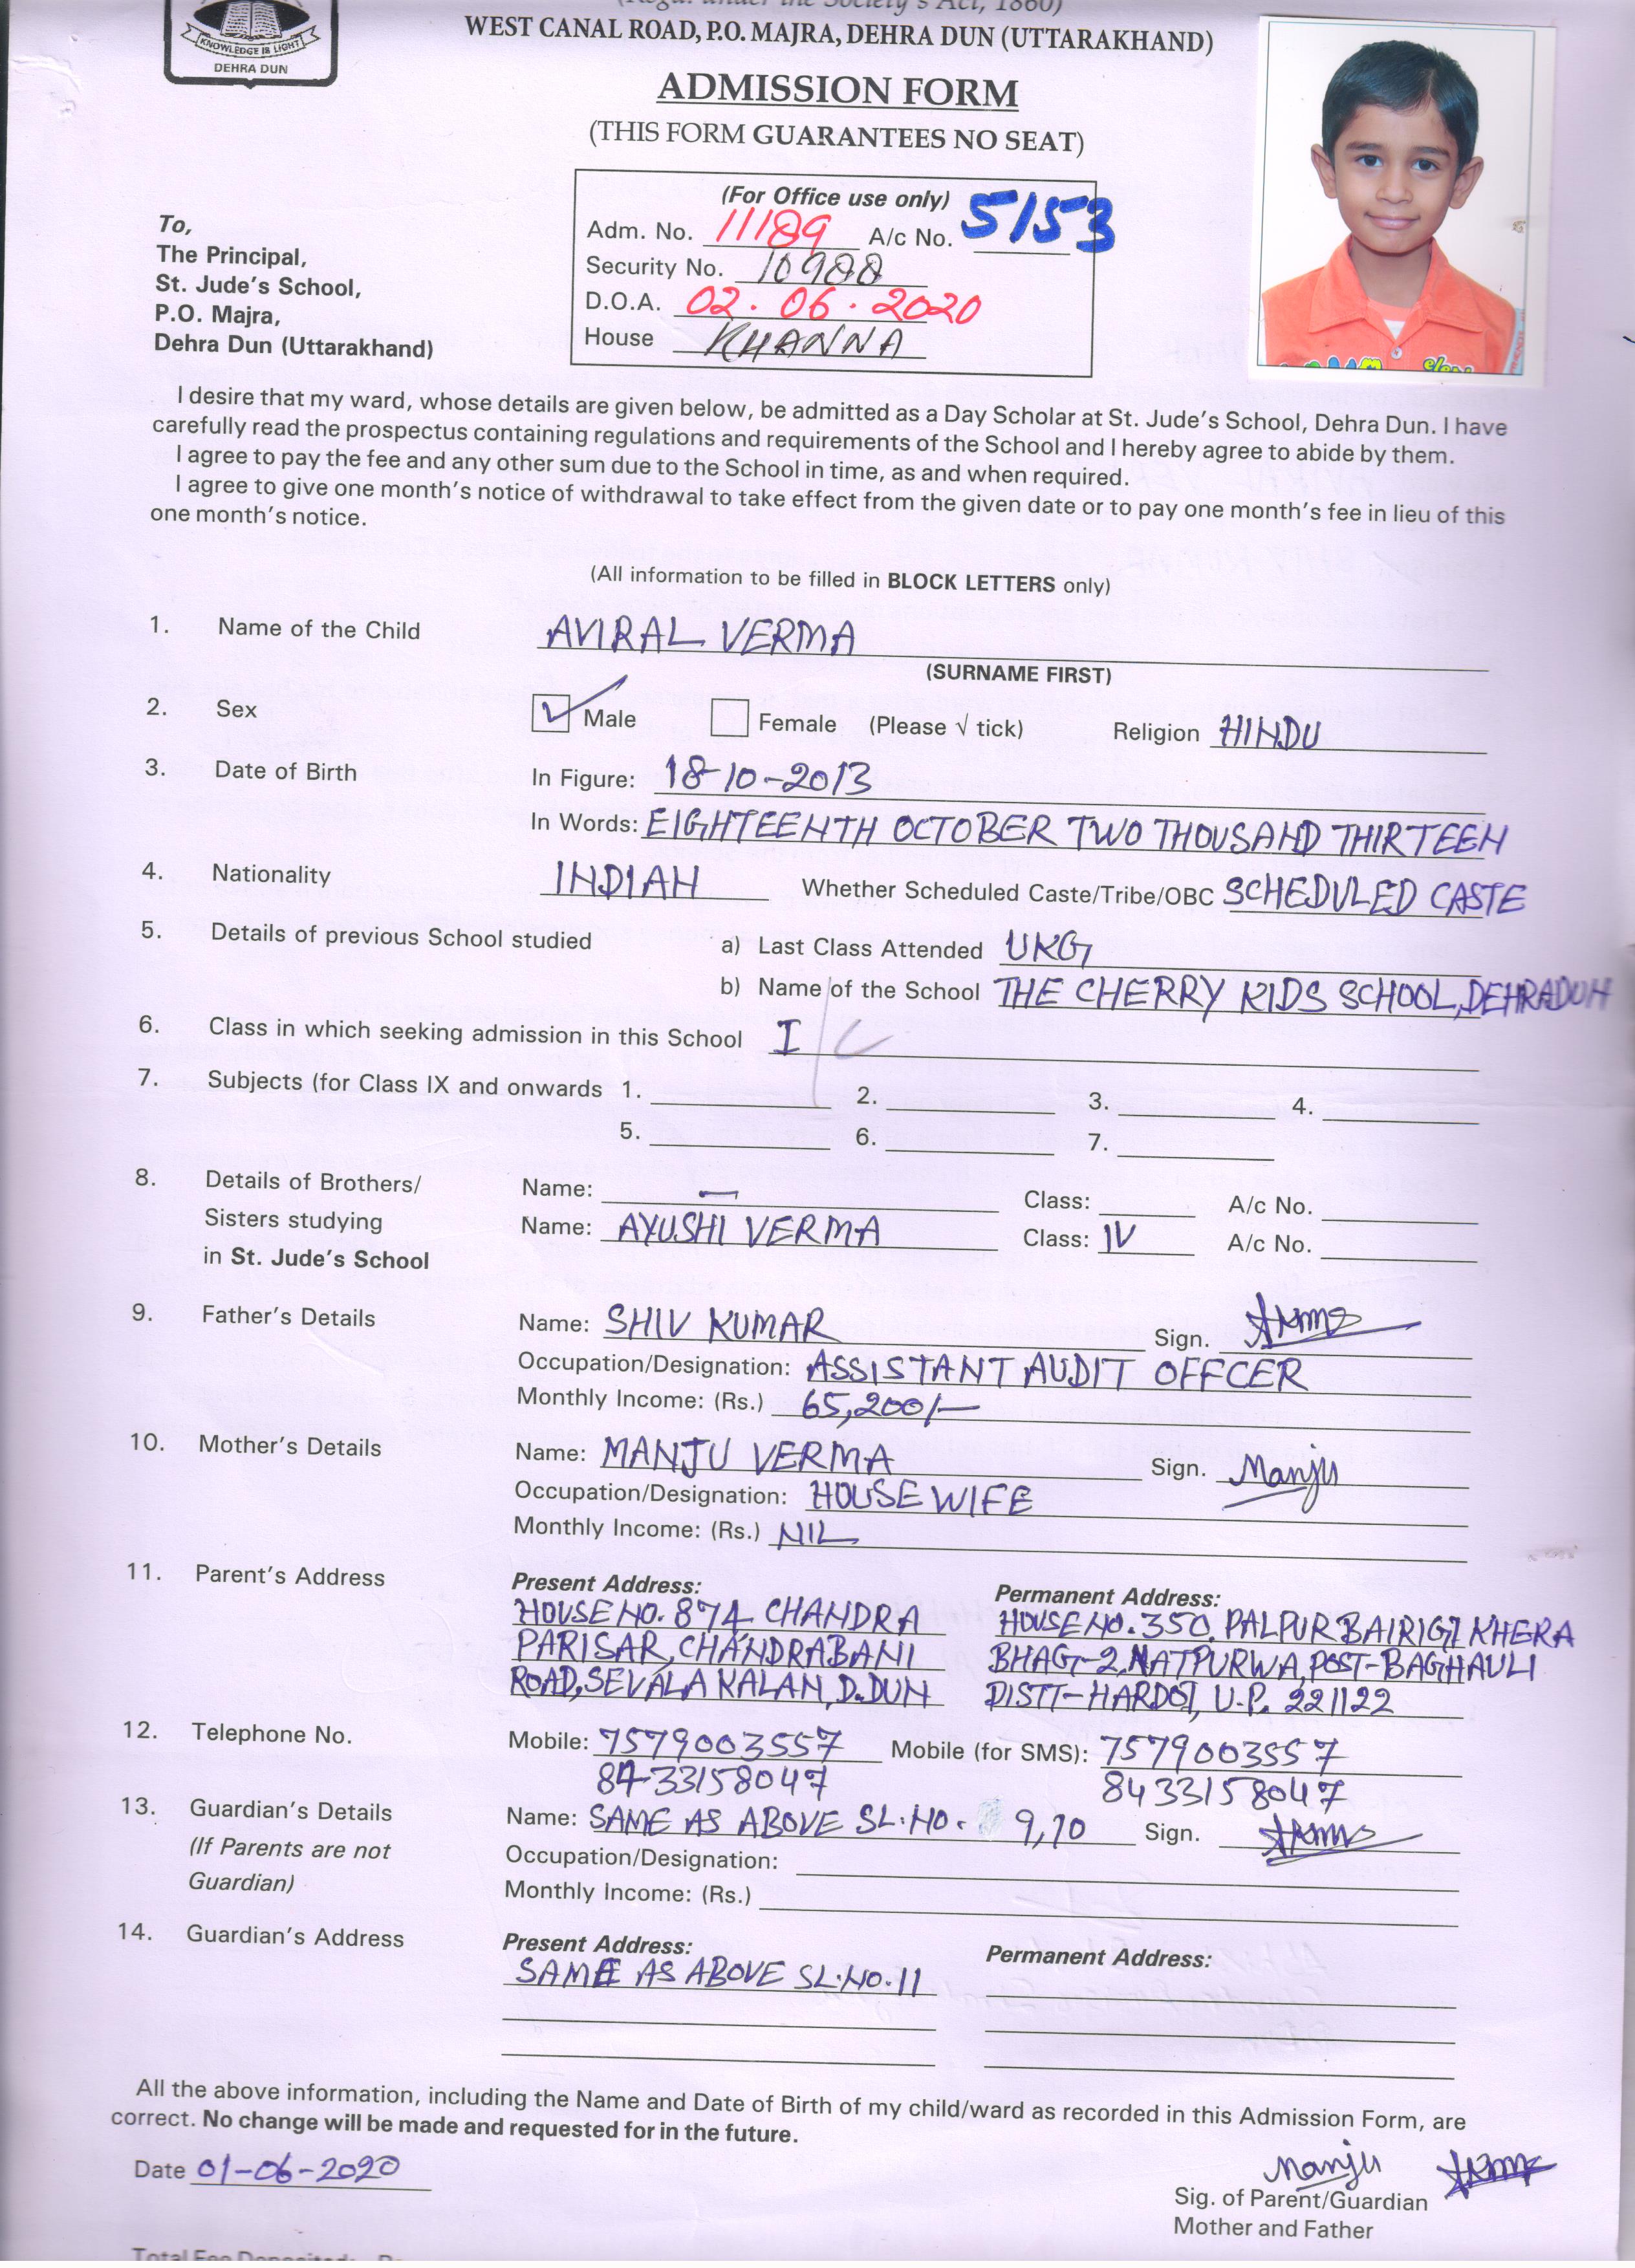 (Regd. under the Society's Act, 1860)
WEST CANAL ROAD, P.O. MAJRA, DEHRA DUN (UTTARAKHAND)
KNOWLEDGE IS LIGHT
DEHRA DUN
ADMISSION FORM
(THIS FORM GUARANTEES NO SEAT)
(For Office use only)
Adm. No. 11189 A/c No. 5153
Security No. 10988
D.O.A. 02.06.2020
House KHANNA
To,
The Principal,
St. Jude's School,
P.O. Majra,
Dehra Dun (Uttarakhand)
I desire that my ward, whose details are given below, be admitted as a Day Scholar at St. Jude's School, Dehra Dun. I have
carefully read the prospectus containing regulations and requirements of the School and I hereby agree to abide by them.
I agree to pay the fee and any other sum due to the School in time, as and when required.
I agree to give one month's notice of withdrawal to take effect from the given date or to pay one month's fee in lieu of this
one month's notice.
(All information to be filled in BLOCK LETTERS only)
1. Name of the Child AVIRAL VERMA
(SURNAME FIRST)
2. Sex Male Female (Please √ tick) Religion HINDU
3. Date of Birth In Figure: 18-10-2013
In Words: EIGHTEENTH OCTOBER TWO THOUSAND THIRTEEN
4. Nationality INDIAN Whether Scheduled Caste/Tribe/OBC SCHEDULED CASTE
5. Details of previous School studied a) Last Class Attended UKG
b) Name of the School THE CHERRY KIDS SCHOOL, DEHRADUN
6. Class in which seeking admission in this School I / C
7. Subjects (for Class IX and onwards 1. 2. 3. 4.
5. 6. 7.
8. Details of Brothers/ Name: — Class: A/c No.
Sisters studying Name: AYUSHI VERMA Class: IV A/c No.
in St. Jude's School
9. Father's Details Name: SHIV KUMAR Sign.
Occupation/Designation: ASSISTANT AUDIT OFFCER
Monthly Income: (Rs.) 65,200/-
10. Mother's Details Name: MANJU VERMA Sign. Manju
Occupation/Designation: HOUSE WIFE
Monthly Income: (Rs.) NIL
11. Parent's Address Present Address: Permanent Address:
HOUSE NO. 874 CHANDRA HOUSE NO. 350, PALPUR BAIRIGI KHERA
PARISAR, CHANDRABANI BHAG-2, NATPURWA, POST-BAGHAULI
ROAD, SEVALA KALAN, D.DUN DISTT-HARDOI, U.P. 221122
12. Telephone No. Mobile: 7579003557 Mobile (for SMS): 7579003557
8433158047 8433158047
13. Guardian's Details Name: SAME AS ABOVE SL.NO. 9,10 Sign.
(If Parents are not Occupation/Designation:
Guardian) Monthly Income: (Rs.)
14. Guardian's Address Present Address: Permanent Address:
SAME AS ABOVE SL.NO.11
All the above information, including the Name and Date of Birth of my child/ward as recorded in this Admission Form, are
correct. No change will be made and requested for in the future.
Date 01-06-2020
Manju
Sig. of Parent/Guardian
Mother and Father
Total Fee Deposited: